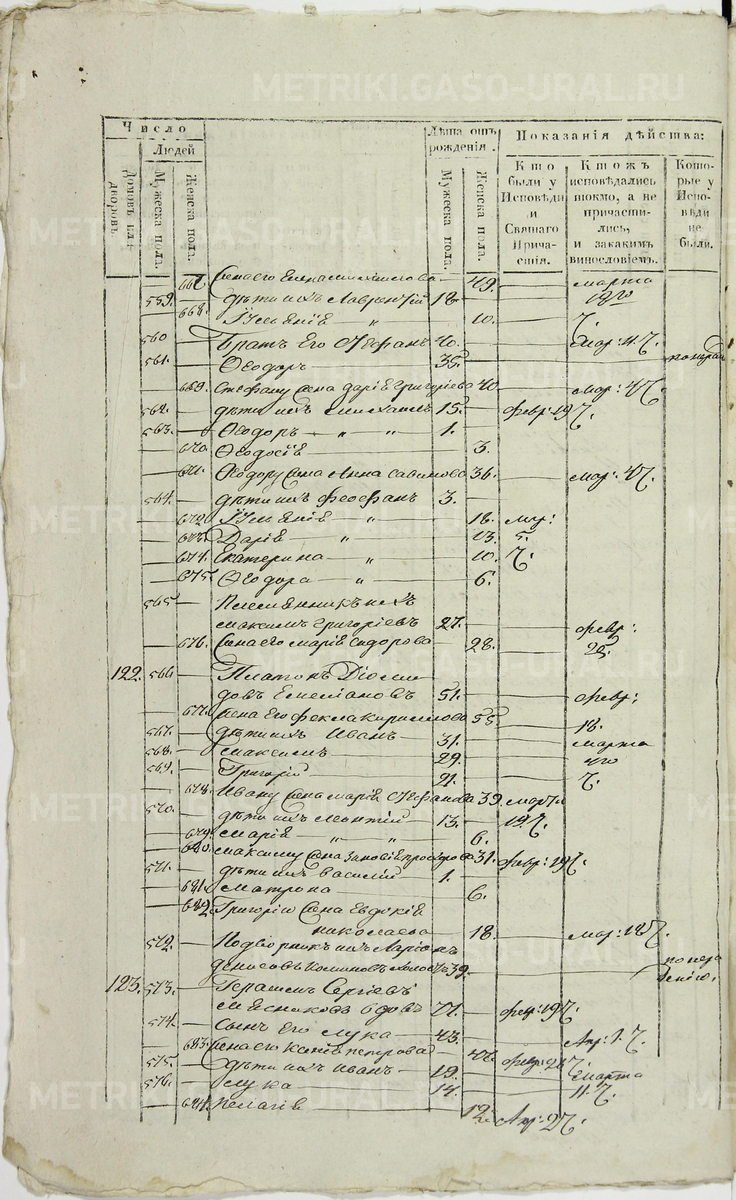 METRIKI.GASO-URAL.RU
Число
Людей
Домовъ или дворовъ.
Мужеска пола.
Женска пола.
Лѣта отъ рожденія.
Мужеска пола.
Женска пола.
Показанія дѣйства:
Кто были у Исповѣди и Святаго Причастія.
Ктожъ исповѣдались токмо, а не причастились, и закакимъ винословіемъ.
Которые у Исповѣди не были.
жена его 49. марта
559. дѣти ихъ Лаврентій 18.
668. Іуліанія 10. ч.
560 Братъ Его Стефанъ 40. Мар: 11. ч.
561. Ѳеодоръ 35.
669. Стефану жена Дарія Григоріева 40 мар: 4 ч.
562. дѣти ихъ 15. февр: 19 ч.
563. Ѳеодоръ „ „ 1.
670. Ѳеодосія 3.
671. Ѳеодору жена Анна Савинова 36. мар: 4 ч.
564. дѣти ихъ Феофанъ 3.
672. Іуліанія „ 18. мар:
673. Дарія „ 13. 5.
674. Екатерина „ 10. ч.
675. Ѳеодора „ 6.
565. Племянникъ ихъ
Максимъ Григоріевъ 27. февр:
676. жена его Марія Сидорова 28. 25.
122. 566. Платонъ Діоми
довъ Емеліановъ 51. февр:
677. жена Его Фекла Кириллова 55 18.
567. дѣти ихъ Иванъ 31. марта
568. Максимъ 29. 4го
569. Григорій 21. ч.
678. Ивану жена Марія Стефанова 39. марта
570. дѣти ихъ Леонтій 13. 19. ч.
679. Марія „ „ 6.
680. Максиму жена Зиновія 31. февр: 19 ч.
571. дѣти ихъ Василій 1.
681. Матрона 6.
682. Григорію жена Евдокія
Николаева 18. мар: 18 ч.
572. Подворникъ ихъ Ларіонъ
Денисовъ 39. по нера
дѣнію.
123. 573. Герасимъ Сергіевъ
Мясниковъ вдовъ 77. февр: 19 ч.
574. Сынъ Его Лука 43. Апр: 1. ч.
683. жена его Ксенія Петрова 42. февр: ч.
575. дѣти ихъ Иванъ 19. Марта
576. Лука 14. 11. ч.
684. Пелагія 12. Апр: 2 ч.